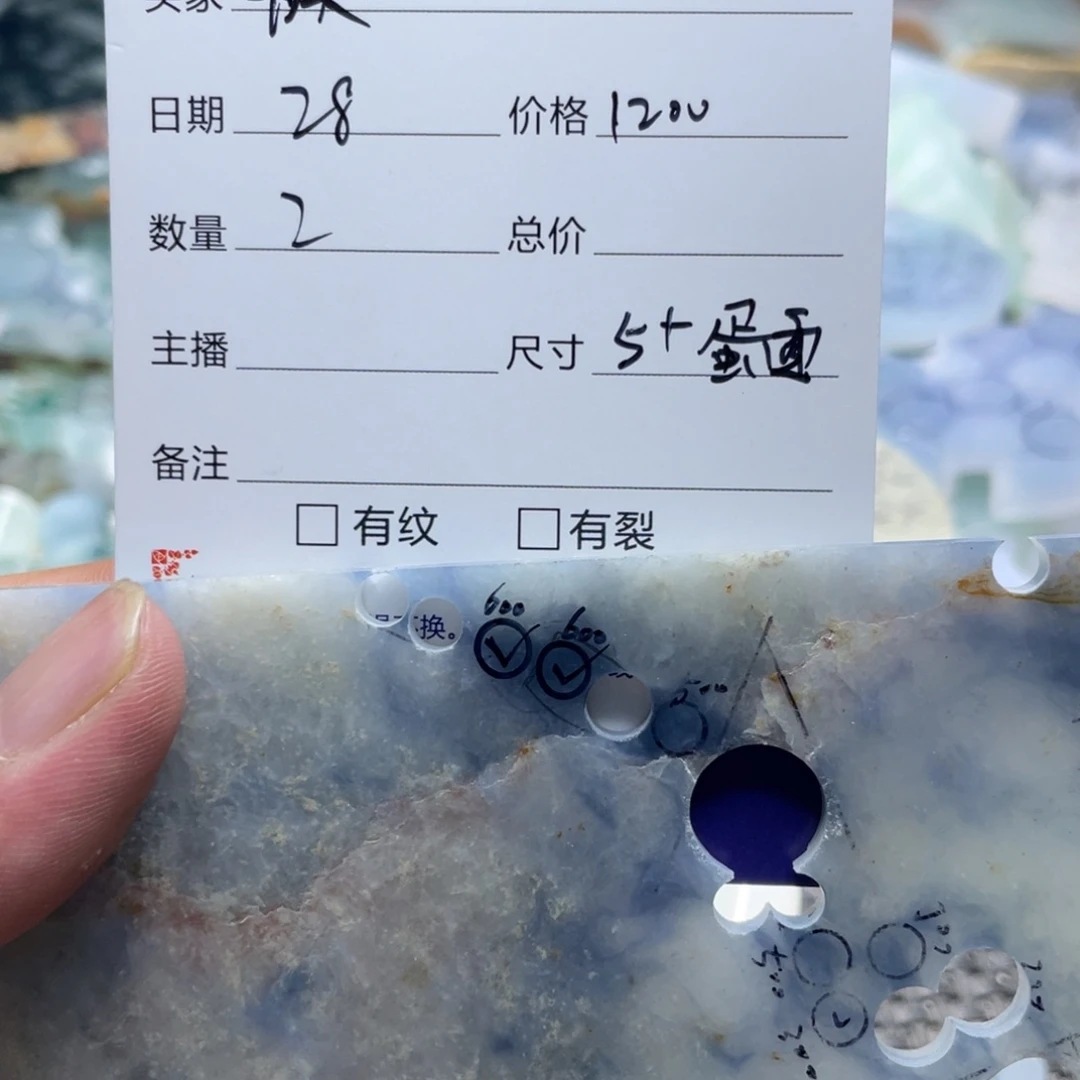 买家
日期 28 价格 1200
数量 2 总价
主播 尺寸 5+蛋面
备注
有纹 有裂
换。
600
600
500